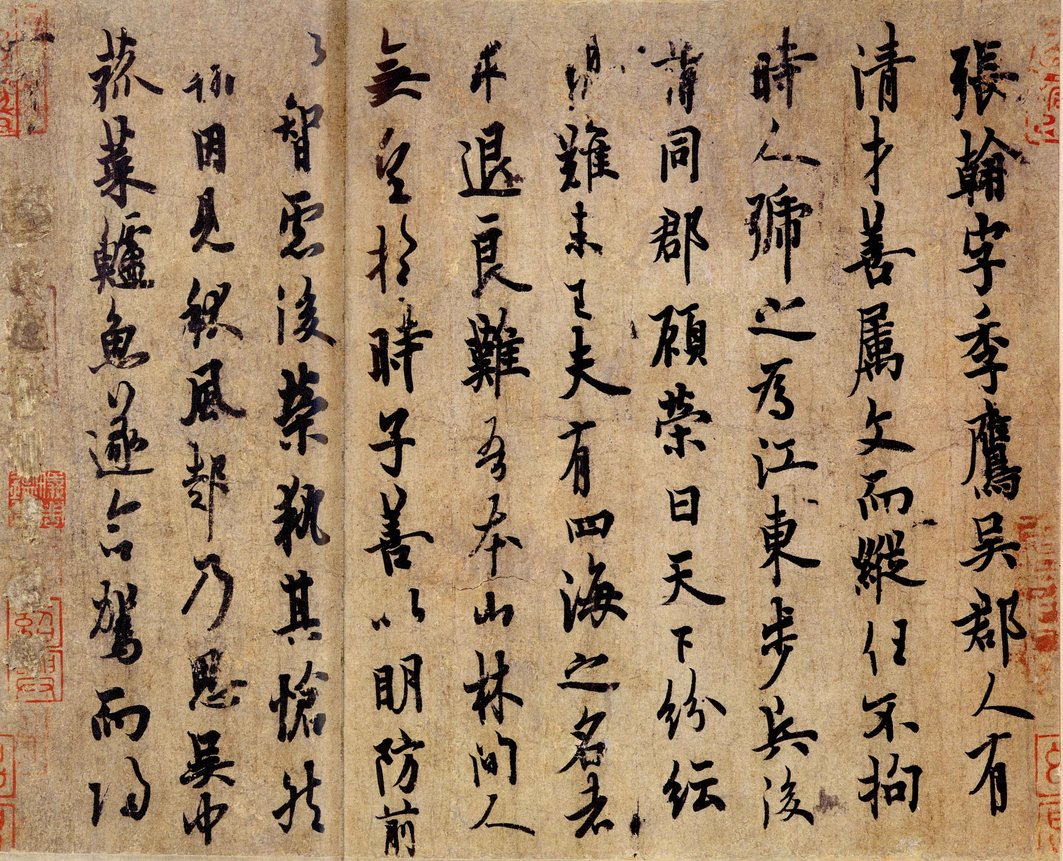 張翰字季鷹吳郡人有
清才善属文而縱任不拘
時人號之為江東步兵後
同郡顧榮曰天下紛紜
難未已夫有四海之名者
求退良難吾本山林間人
無望於時子善以明防前
智慮後榮執其愴然
因見秋風起乃思吳中
菰菜鱸魚遂命駕而歸